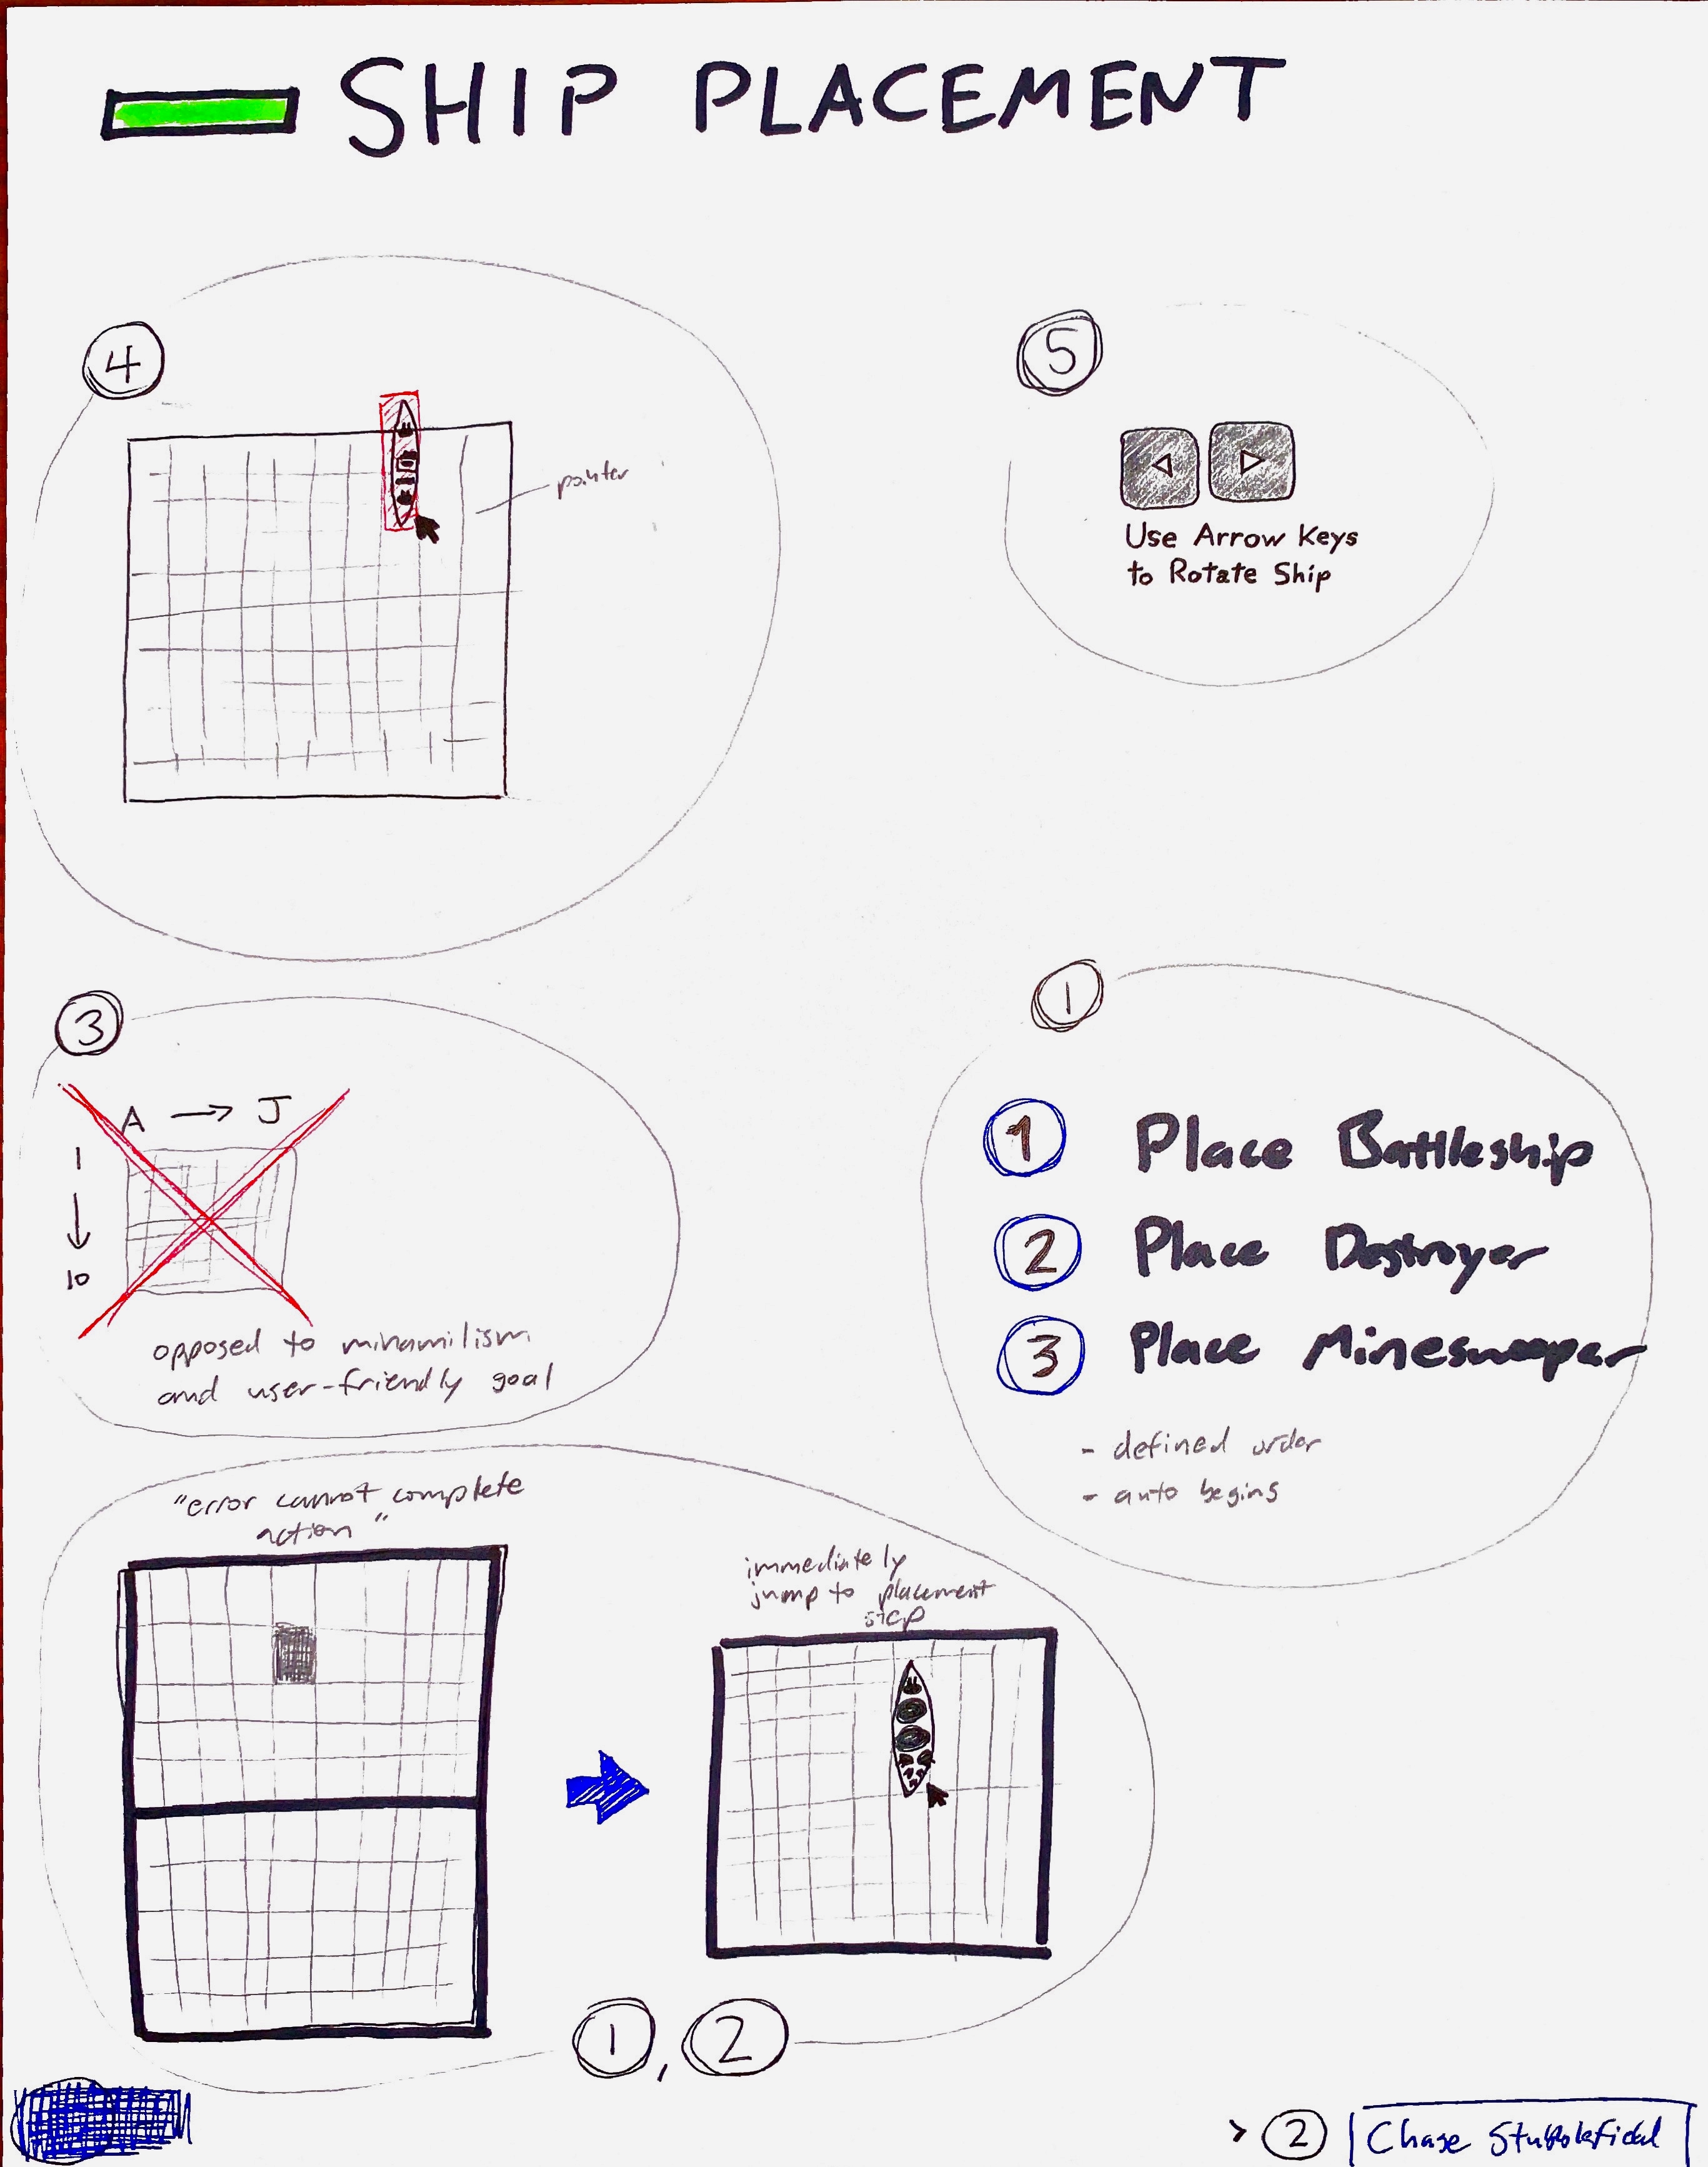 SHIP PLACEMENT
4
pointer
5
Use Arrow Keys
to Rotate Ship
3
A → J
1
↓
10
opposed to minamilism
and user-friendly goal
1
1 Place Battleship
2 Place Destroyer
3 Place Minesweeper
- defined order
- auto begins
"error cannot complete
action"
immediately
jump to placement
step
1, 2
> 2 Chase